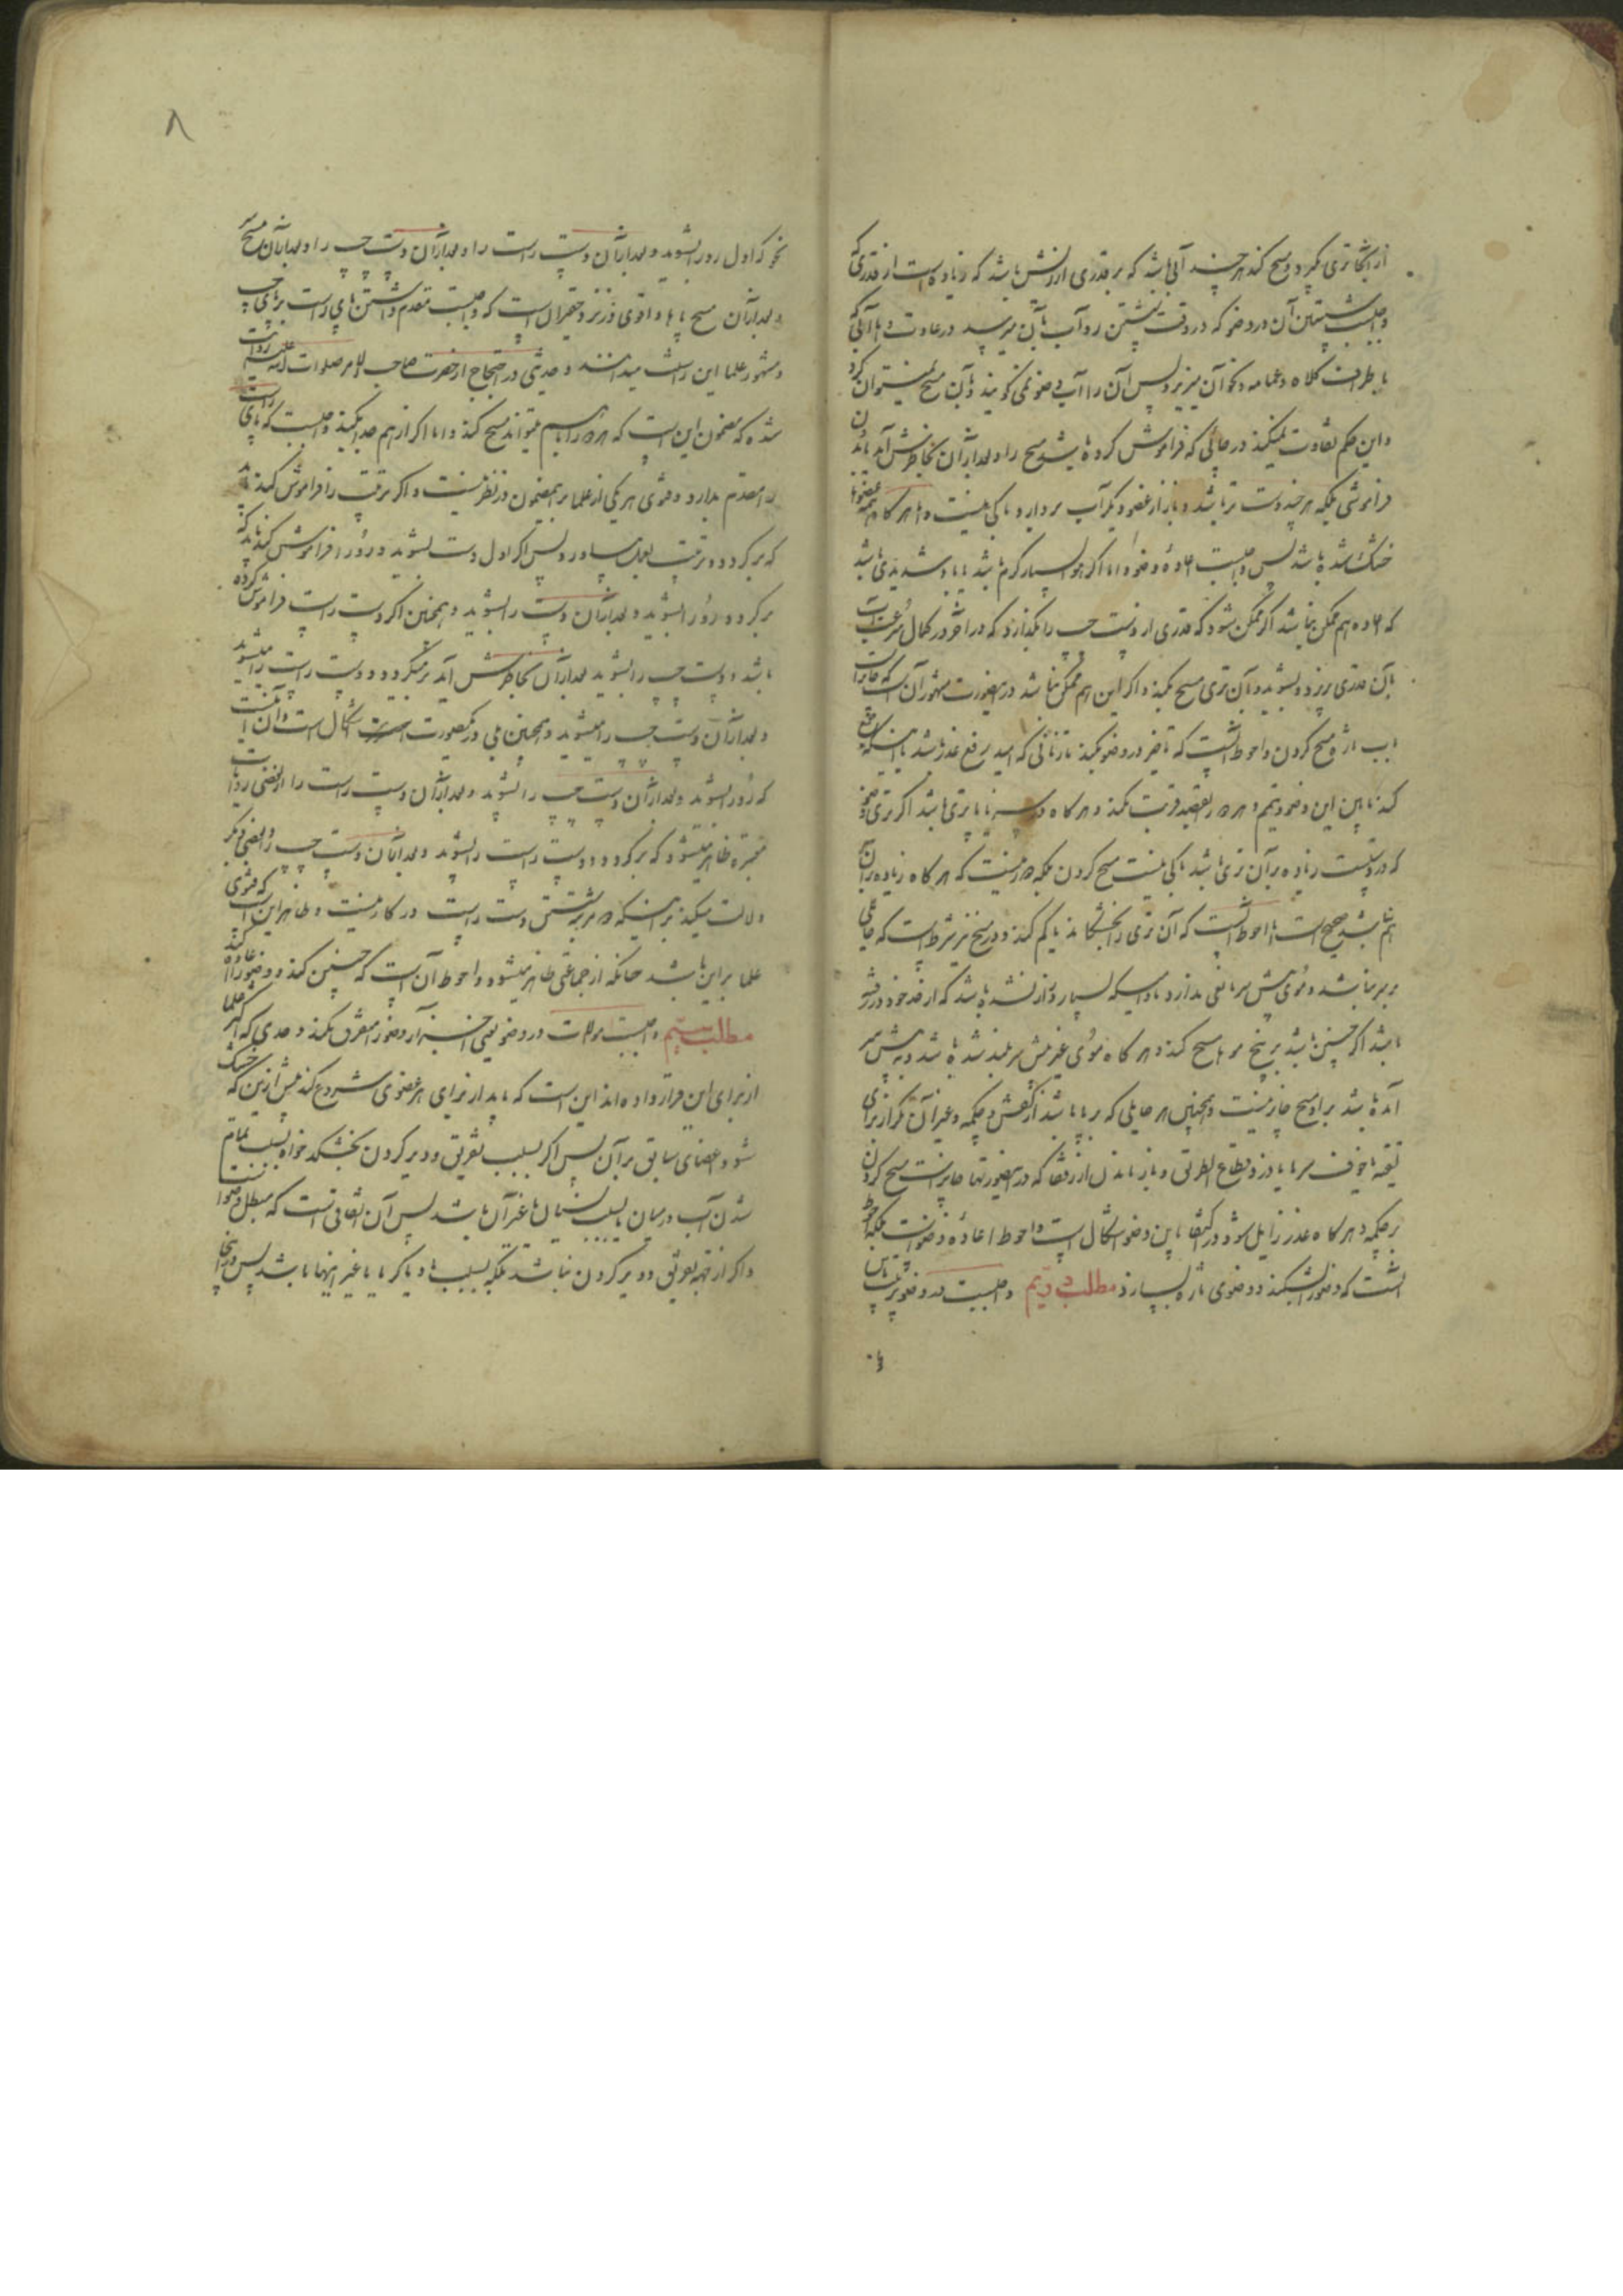 از آنجا تری بگیرد و مسح کند هر چند آبی باشد که بر قدری از ریش باشد که زیاده است از قدری که
واجبست شستن آن در وضو که در وقت شستن رو آب بآن میرسد در عادت و اما آبی که
باطراف کلاه و عمامه و نحو آن میریزد پس آن را آب وضو نمی گویند و بآن مسح نمیتوان کرد
و این حکم تفاوت نمیکند در حالی که فراموش کرده باشد مسح را و بعد از آن بخاطرش آید بدون
فراموشی بلکه هر چند دست تر باشد و باز از عضو دیگر آب بردارد باکی نیست و هر گاه همه عضوها
خشک شده باشد پس واجبست اعاده وضو و اما اگر هوا بسیار گرم باشد یا باد شدیدی باشد
که اعاده هم ممکن نباشد اگر ممکن شود که قدری از دست چپ را بگذارد که در آخر در کمال سرعت آب
بآن قدری ریزد و بشوید و بآن تری مسح بکند و اگر این هم ممکن نباشد در اینصورت مشهور آن است که جایز است
بآب تازه مسح کردن و احوط آنست که تاخیر در وضو بکند تا زمانی که امید رفع عذر باشد یا اینکه جمع
کند مابین این وضو و تیمم و هر دو را بقصد قربت بکند و هر گاه در سر یا پا تری باشد اگر تری وضو
که در دست زیاده بر آن تری باشد باکی نیست مسح کردن بلکه دور نیست که هر گاه زیاده بر آن
هم نباشد صحیح است اما احوط آنست که آن تری را بخشکاند یا کم کند و در مسح نیز شرط است که حایلی
بر سر نباشد و موی پیش سر مانعی ندارد مادامیکه بسیار دراز نشده باشد که از حد خود در رفته
باشد اگر چنین باشد بر بیخ موها مسح کند و هر گاه موی غیر پیش سر بلند شده باشد و به پیش سر
آمده باشد بر او مسح جایز نیست و همچنین هر حایلی که بر پا باشد از کفش و چکمه و غیر آن مگر از برای
تقیه یا خوف سرما یا دزد و قطاع الطریق و باز ماندن از رفقا که در اینصورتها جایز است مسح کردن
بر چکمه و هر گاه عذر زایل شود در اکتفا باین وضو اشکال است و احوط اعاده وضو است بلکه احوط
آنست که وضو را بشکند و وضوی تازه بسازد مطلب دویم واجبست در وضو ترتیب باین
نحو که اول رو را بشوید و بعد از آن دست راست را و بعد از آن دست چپ را و بعد از آن مسح سر
و بعد از آن مسح پاها و اقوی در نزد حقیر آن است که واجبست مقدم داشتن پای راست بر پای چپ
و مشهور علما این را سنت میدانند و حدیثی در احتجاج از حضرت صاحب الامر صلوات الله علیه روایت
شده که مضمون این است که هر دو را باهم میتواند مسح کند و اما اگر از هم جدا بکند واجبست که پای راست
را مقدم بدارد و فتوی هر یکی از علما بر این مضمون در نظر نیست و اگر ترتیب را فراموش کند باید
که برگردد و ترتیب بعمل بیاورد پس اگر اول دست بشوید و رو را فراموش کند باید که
برگردد و رو را بشوید و بعد از آن دست را بشوید و همچنین اگر دست راست فراموش کرده
باشد و دست چپ را بشوید بعد از آن بخاطرش آید برمیگردد و دست راست را میشوید
و بعد از آن دست چپ را میشوید و همچنین بلی در یکصورت اشکال است و آن اینست
که رو را بشوید و بعد از آن دست چپ را بشوید و بعد از آن دست راست را از بعضی روایات
معتبره ظاهر میشود که برگردد و دست راست را بشوید و بعد از آن دست چپ را و بعضی دیگر
دلالت میکند بر اینکه دو مرتبه شستن دست راست در کار نیست و ظاهر این است که فتوی
علما بر این باشد چنانکه از جماعتی ظاهر میشود و احوط آن است که چنین کند و وضو را اعاده کند
مطلب سیّم واجبست موالات در وضو یعنی اجزاء وضو را متفرق نکند و حدی که اکثر علما
از برای این قرار داده اند این است که باید از برای هر عضوی شروع کند پیش از این که خشک
شود اعضای سابق بر آن پس اگر بسبب تفریق و دیر کردن بخشکد خواه بسبب تمام
شدن آب در میان یا بسبب نسیان یا غیر آن باشد پس آن اتفاقی است که مبطل وضو است
و اگر از جهة تفریق و دیر کردن نباشد بلکه بسبب باد یا گرما یا غیر اینها باشد پس در اینجا